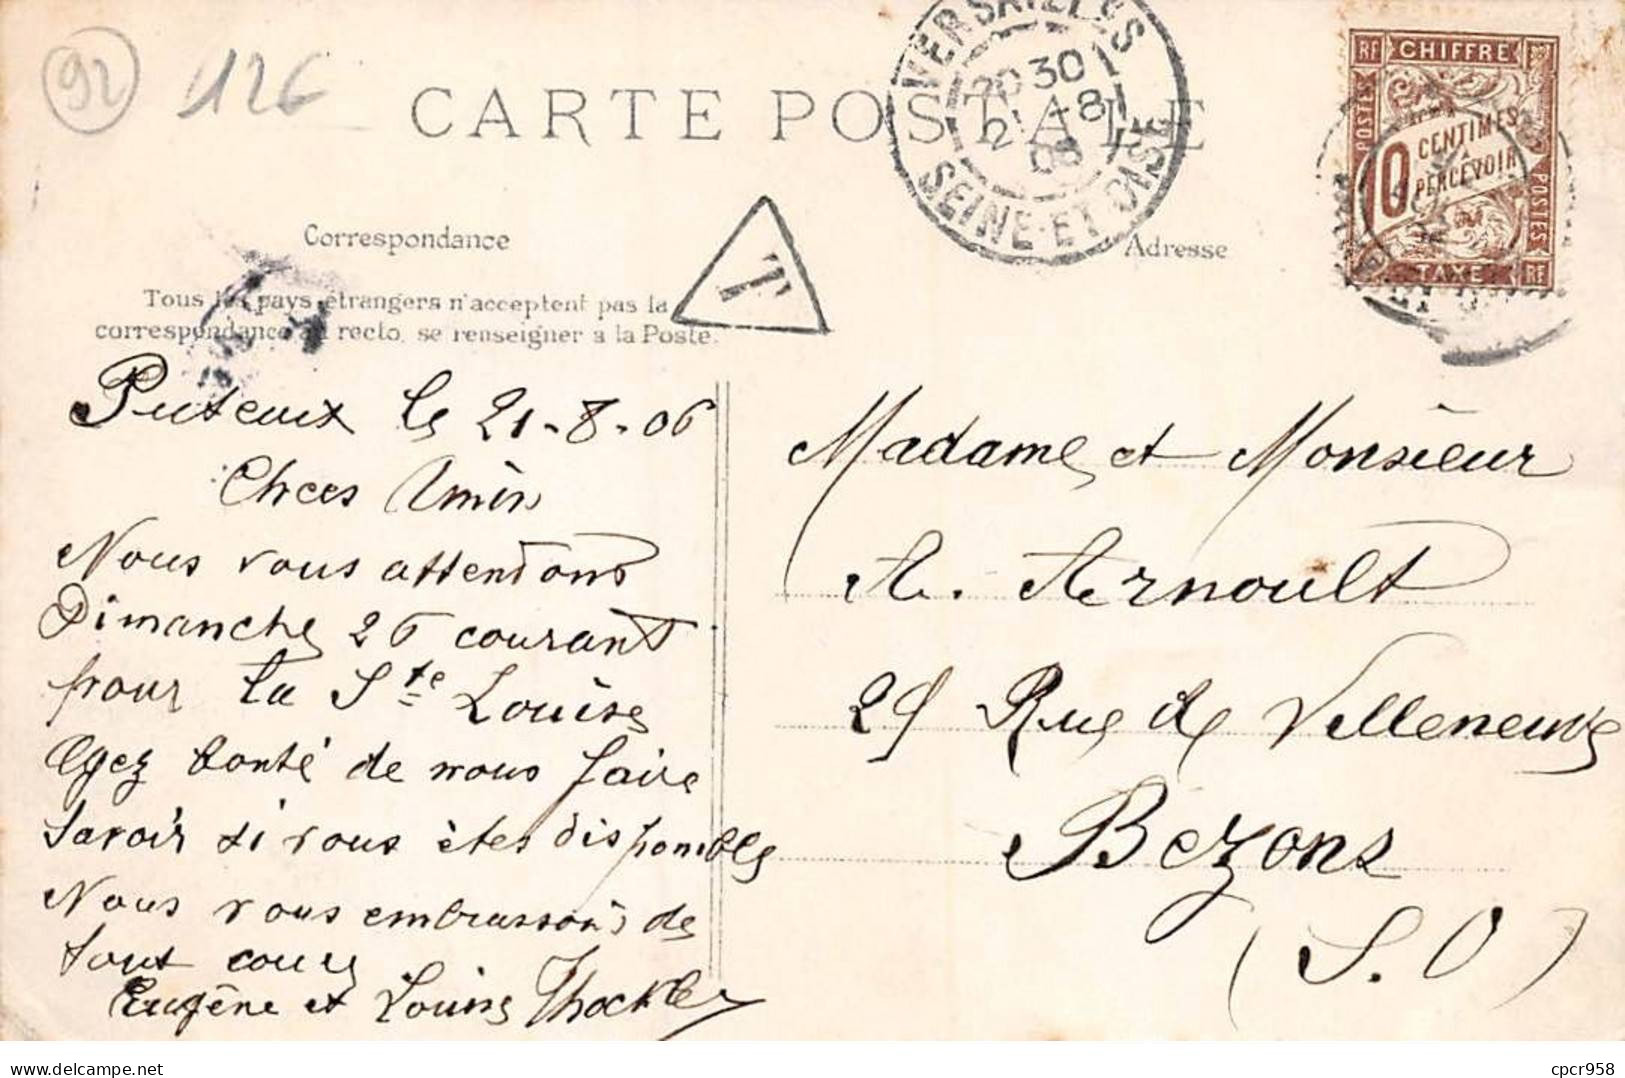 92 126
CARTE POSTALE
VERSAILLES
20 30
21 -8
06
SEINE-ET-OISE
RF CHIFFRE
POSTES
10 CENTIMES
A
PERCEVOIR
POSTES
RF TAXE RF
T
Correspondance
Adresse
Tous les pays étrangers n'acceptent pas la
correspondance au recto, se renseigner a la Poste.
Puteaux le 21-8-06
Chers Amis
Nous vous attendons
Dimanche 26 courant
pour la Ste Louise
Ayez bonté de nous faire
savoir si vous êtes disponible
Nous vous embrassons de
tout cœur
Eugène et Louise
Madame et Monsieur
A. Arnoult
29 Rue de Villeneuve
Bezons
(S.O)
delcampe.net
cpcr958